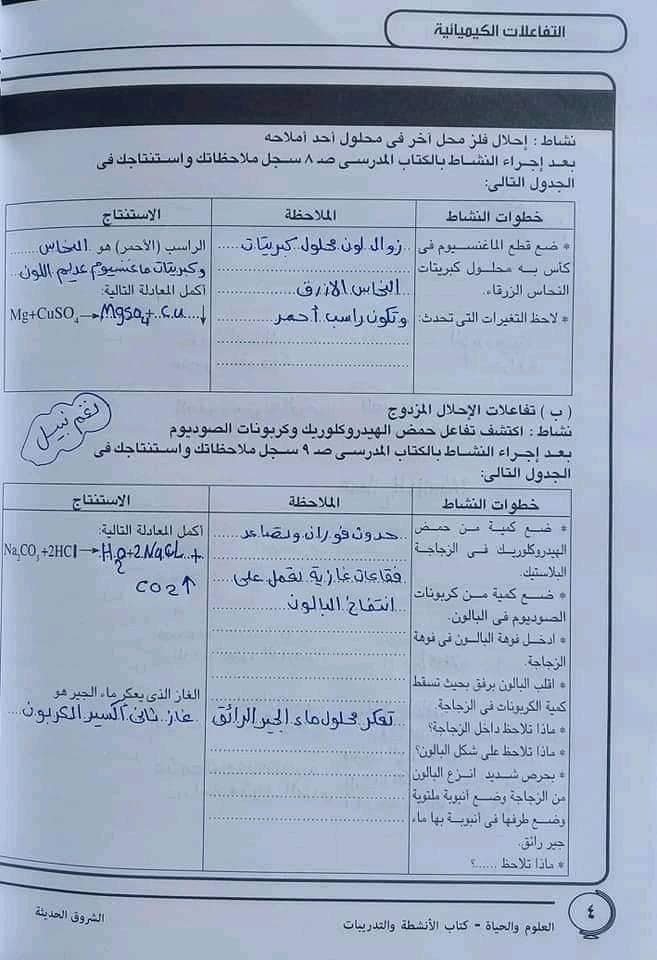 التفاعلات الكيميائية
نشاط : إحلال فلز محل آخر فى محلول أحد أملاحه
بعد إجراء النشاط بالكتاب المدرسى صـ ٨ سجل ملاحظاتك واستنتاجك فى
الجدول التالى:
خطوات النشاط
الملاحظة
الاستنتاج
* ضع قطع الماغنسيوم فى
كأس به محلول كبريتات
النحاس الزرقاء.
* لاحظ التغيرات التى تحدث:
زوال لون محلول كبريتات
النحاس الازرق
وتكون راسب أحمر
الراسب (الأحمر) هو النحاس
وكبريتات ماغنسيوم عديم اللون
أكمل المعادلة التالية:
Mg+CuSO4 → MgSO4 + Cu ↓
(ب) تفاعلات الإحلال المزدوج
نشاط : اكتشف تفاعل حمض الهيدروكلوريك وكربونات الصوديوم
بعد إجراء النشاط بالكتاب المدرسى صـ ٩ سجل ملاحظاتك واستنتاجك فى
الجدول التالى:
نغم نبيل
خطوات النشاط
الملاحظة
الاستنتاج
* ضع كمية من حمض
الهيدروكلوريك فى الزجاجة
البلاستيك.
* ضع كمية من كربونات
الصوديوم فى البالون.
* ادخل فوهة البالون فى فوهة
الزجاجة.
* اقلب البالون برفق بحيث تسقط
كمية الكربونات فى الزجاجة.
* ماذا تلاحظ داخل الزجاجة؟
* ماذا تلاحظ على شكل البالون؟
* بحرص شديد انزع البالون
من الزجاجة وضع أنبوبة ملتوية
وضع طرفها فى أنبوبة بها ماء
جير رائق.
* ماذا تلاحظ ......؟
حدوث فوران وتصاعد
فقاعات غازية تعمل على
انتفاخ البالون
تعكر محلول ماء الجير الرائق
أكمل المعادلة التالية:
Na2CO3 +2HCl → H2O+2NaCL +
CO2 ↑
الغاز الذى يعكر ماء الجير هو
غاز ثانى أكسيد الكربون
٤
العلوم والحياة - كتاب الأنشطة والتدريبات
الشروق الحديثة